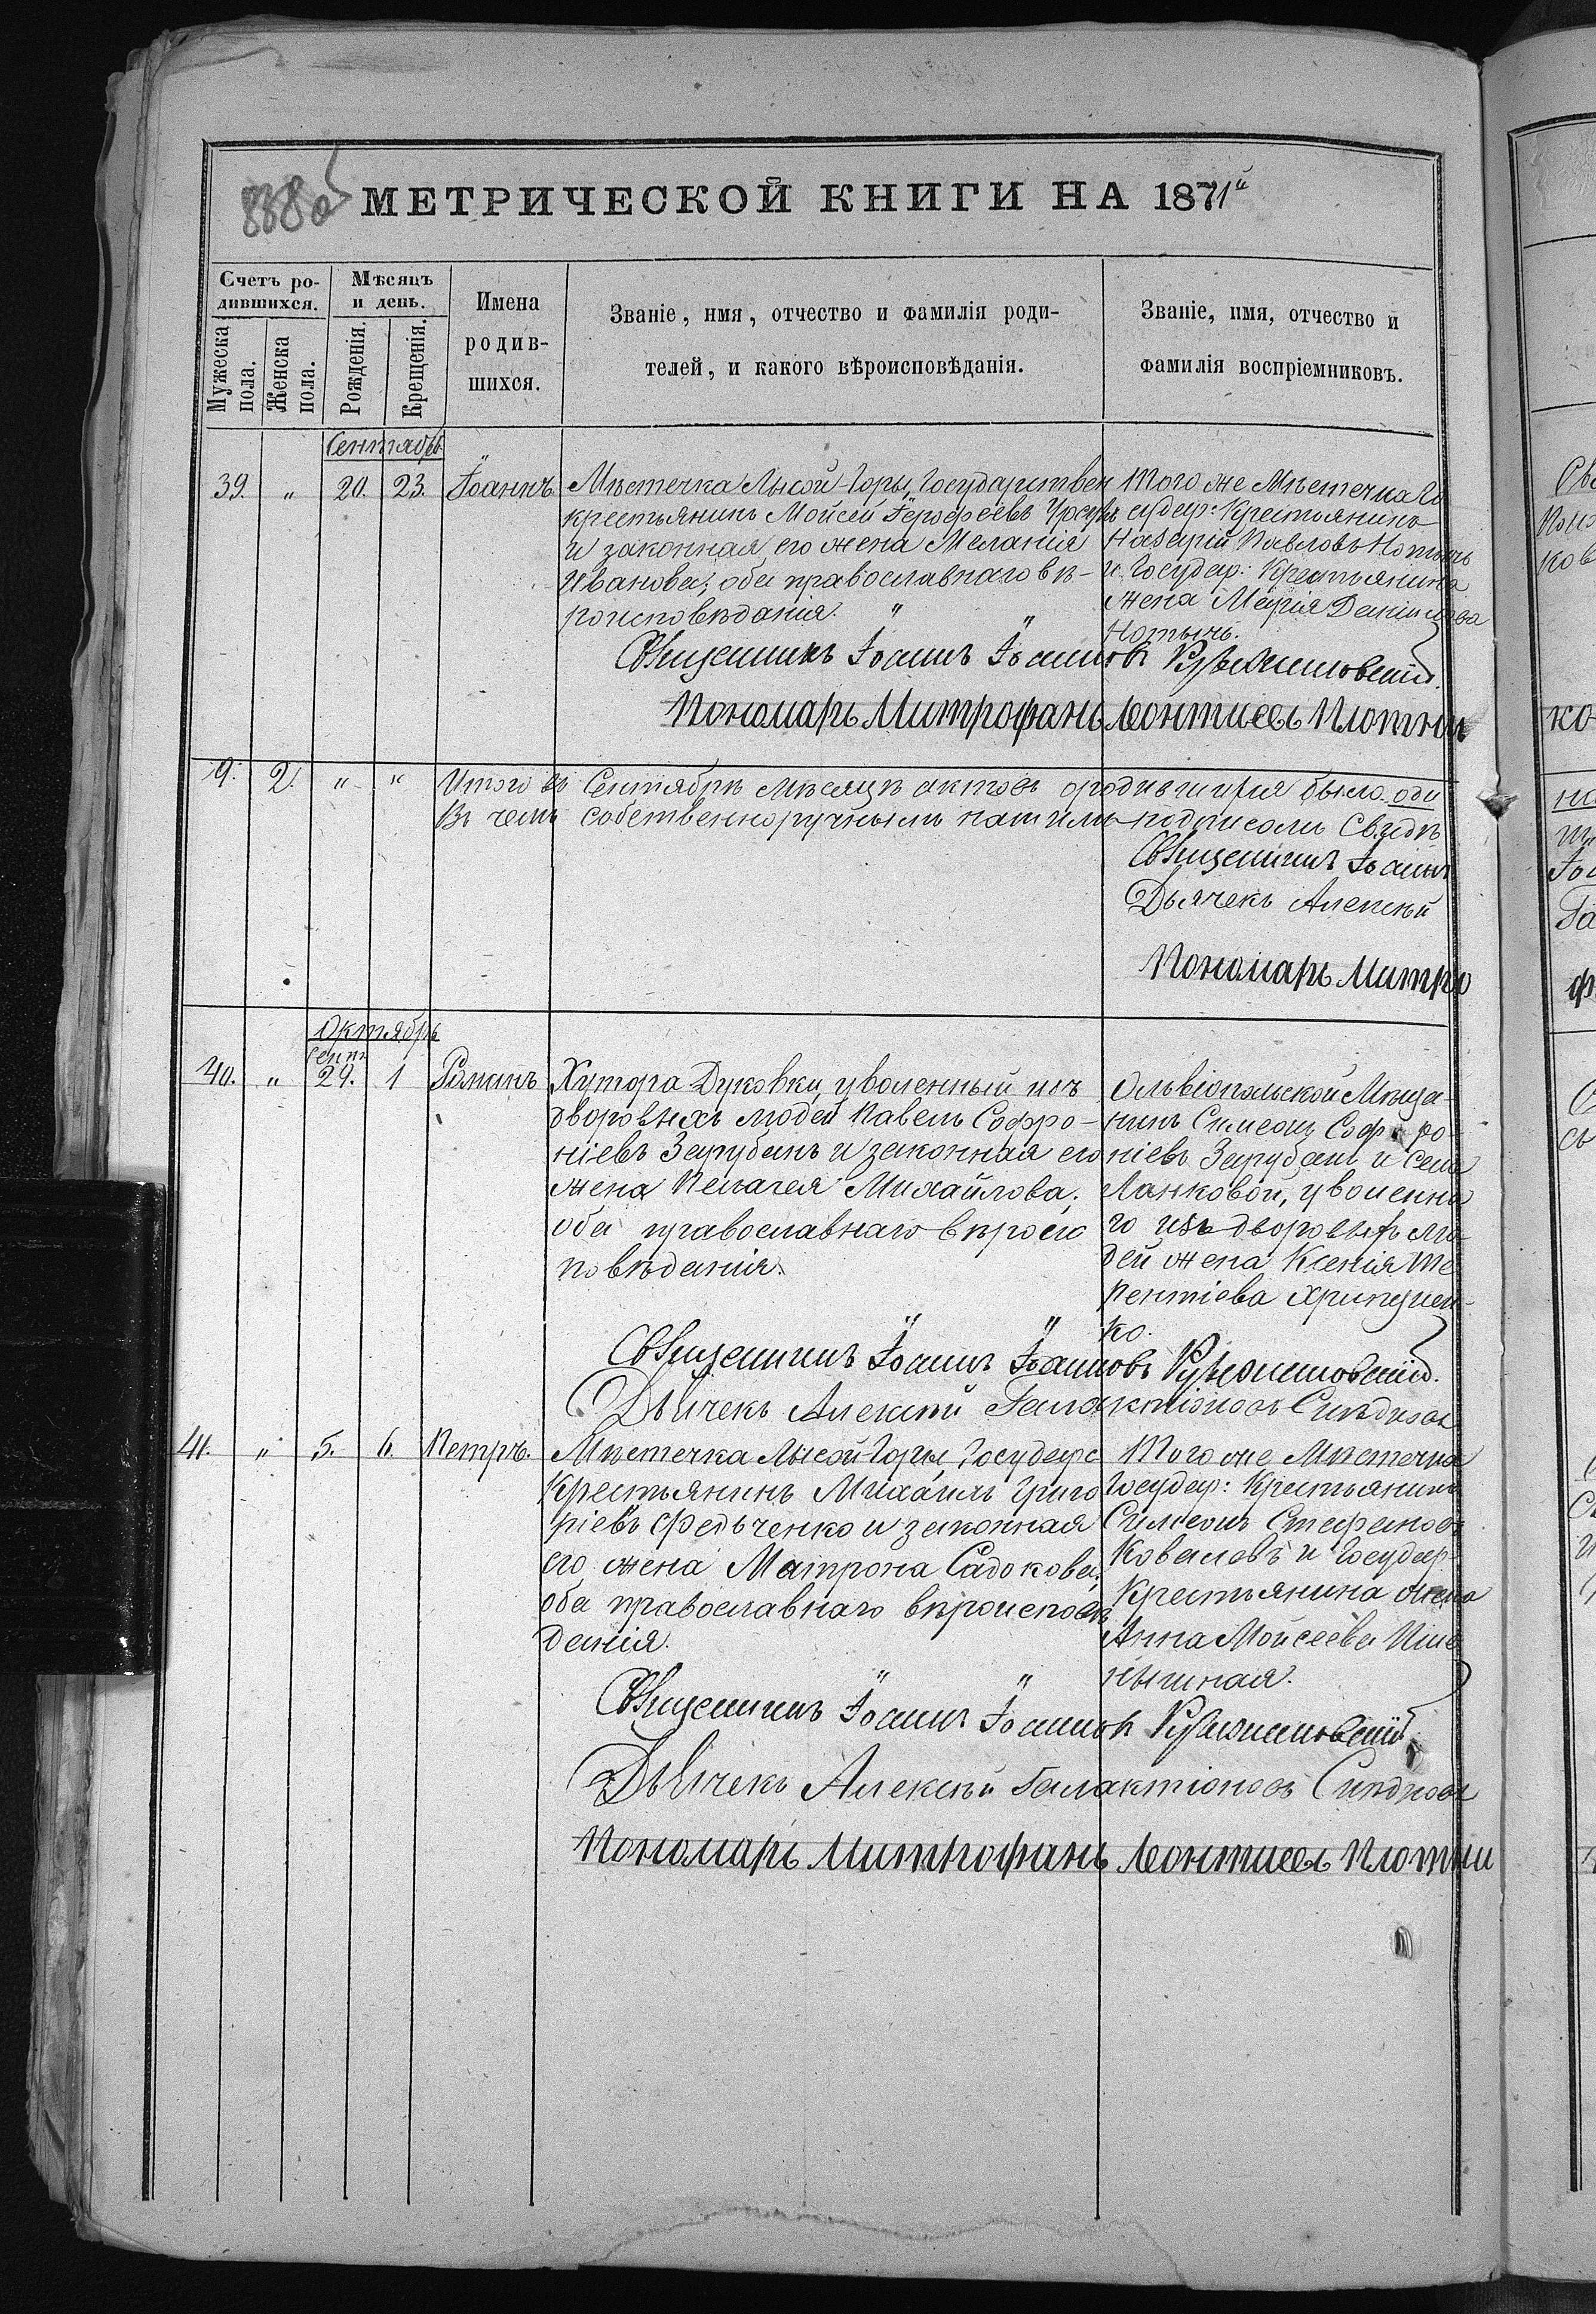 888об
МЕТРИЧЕСКОЙ КНИГИ НА 1871й
Счетъ ро-
дившихся.
Мужеска пола.
Женска пола.
Мѣсяцъ
и день.
Рожденія.
Крещенія.
Имена
родив-
шихся.
Званіе, имя, отчество и фамилія роди-
телей, и какого вѣроисповѣданія.
Званіе, имя, отчество и
фамилія воспріемниковъ.
Сентябрь
39. " 20. 23. Іоаннъ
Мѣстечка Лысой-Горы, Государствен
крестьянинъ Мойсей Іерофеевъ
и законная его жена Меланія
Иванова; оба православнаго вѣ-
роисповѣданія. " "
Того же Мѣстечка Го
судар: Крестьянинъ
Назарій Павловъ Нотычь
и Государ: Крестьянина
жена Марія Данілова
Нотычь.
Священникъ Іоаннъ Іоанновъ
Пономарь Митрофанъ Леонтиевъ Плотни
9. 2. " " Итого въ Сентябрѣ мѣсяцѣ актовъ о родившихся было оди
Въ чемъ собственноручнымъ нашимъ подписомъ Свидѣ
Священникъ Іоаннъ
Дьячекъ Алексѣй
Пономарь Митро
Октябрь
Сент
40. " 29. 1 Романъ
Хутора Дуковки, уволенный изъ
дворовыхъ людей Павелъ Софро-
ніевъ Зарубанъ и законная его
жена Пелагея Михайлова;
оба православнаго вѣроис
повѣданія.
Ольвіопольской Мѣща-
нинъ Симеонъ Софро-
ніевъ Зарубанъ и села
Ланковой, уволенна
го изъ дворовыхъ лю
дей жена Ксенія Те
рентіева
ко.
Священникъ Іоаннъ Іоанновъ
Дьячекъ Алексѣй Галактіоновъ
41. " 5. 6. Петръ.
Мѣстечка Лысой-Горы, Государс
Крестьянинъ Михаилъ Григо
ріевъ Федьченко и законная
его жена Матрона Садокова;
оба православнаго вѣроисповѣ
данія.
Того же Мѣстечка
Государ: Крестьянинъ
Симеонъ Стефановъ
Коваловъ и Государ-
Крестьянина жена
Анна Мойсеева Пше
нышная.
Священникъ Іоаннъ Іоанновъ
Дьячекъ Алексѣй Галактіоновъ
Пономарь Митрофанъ Леонтиевъ Плотни